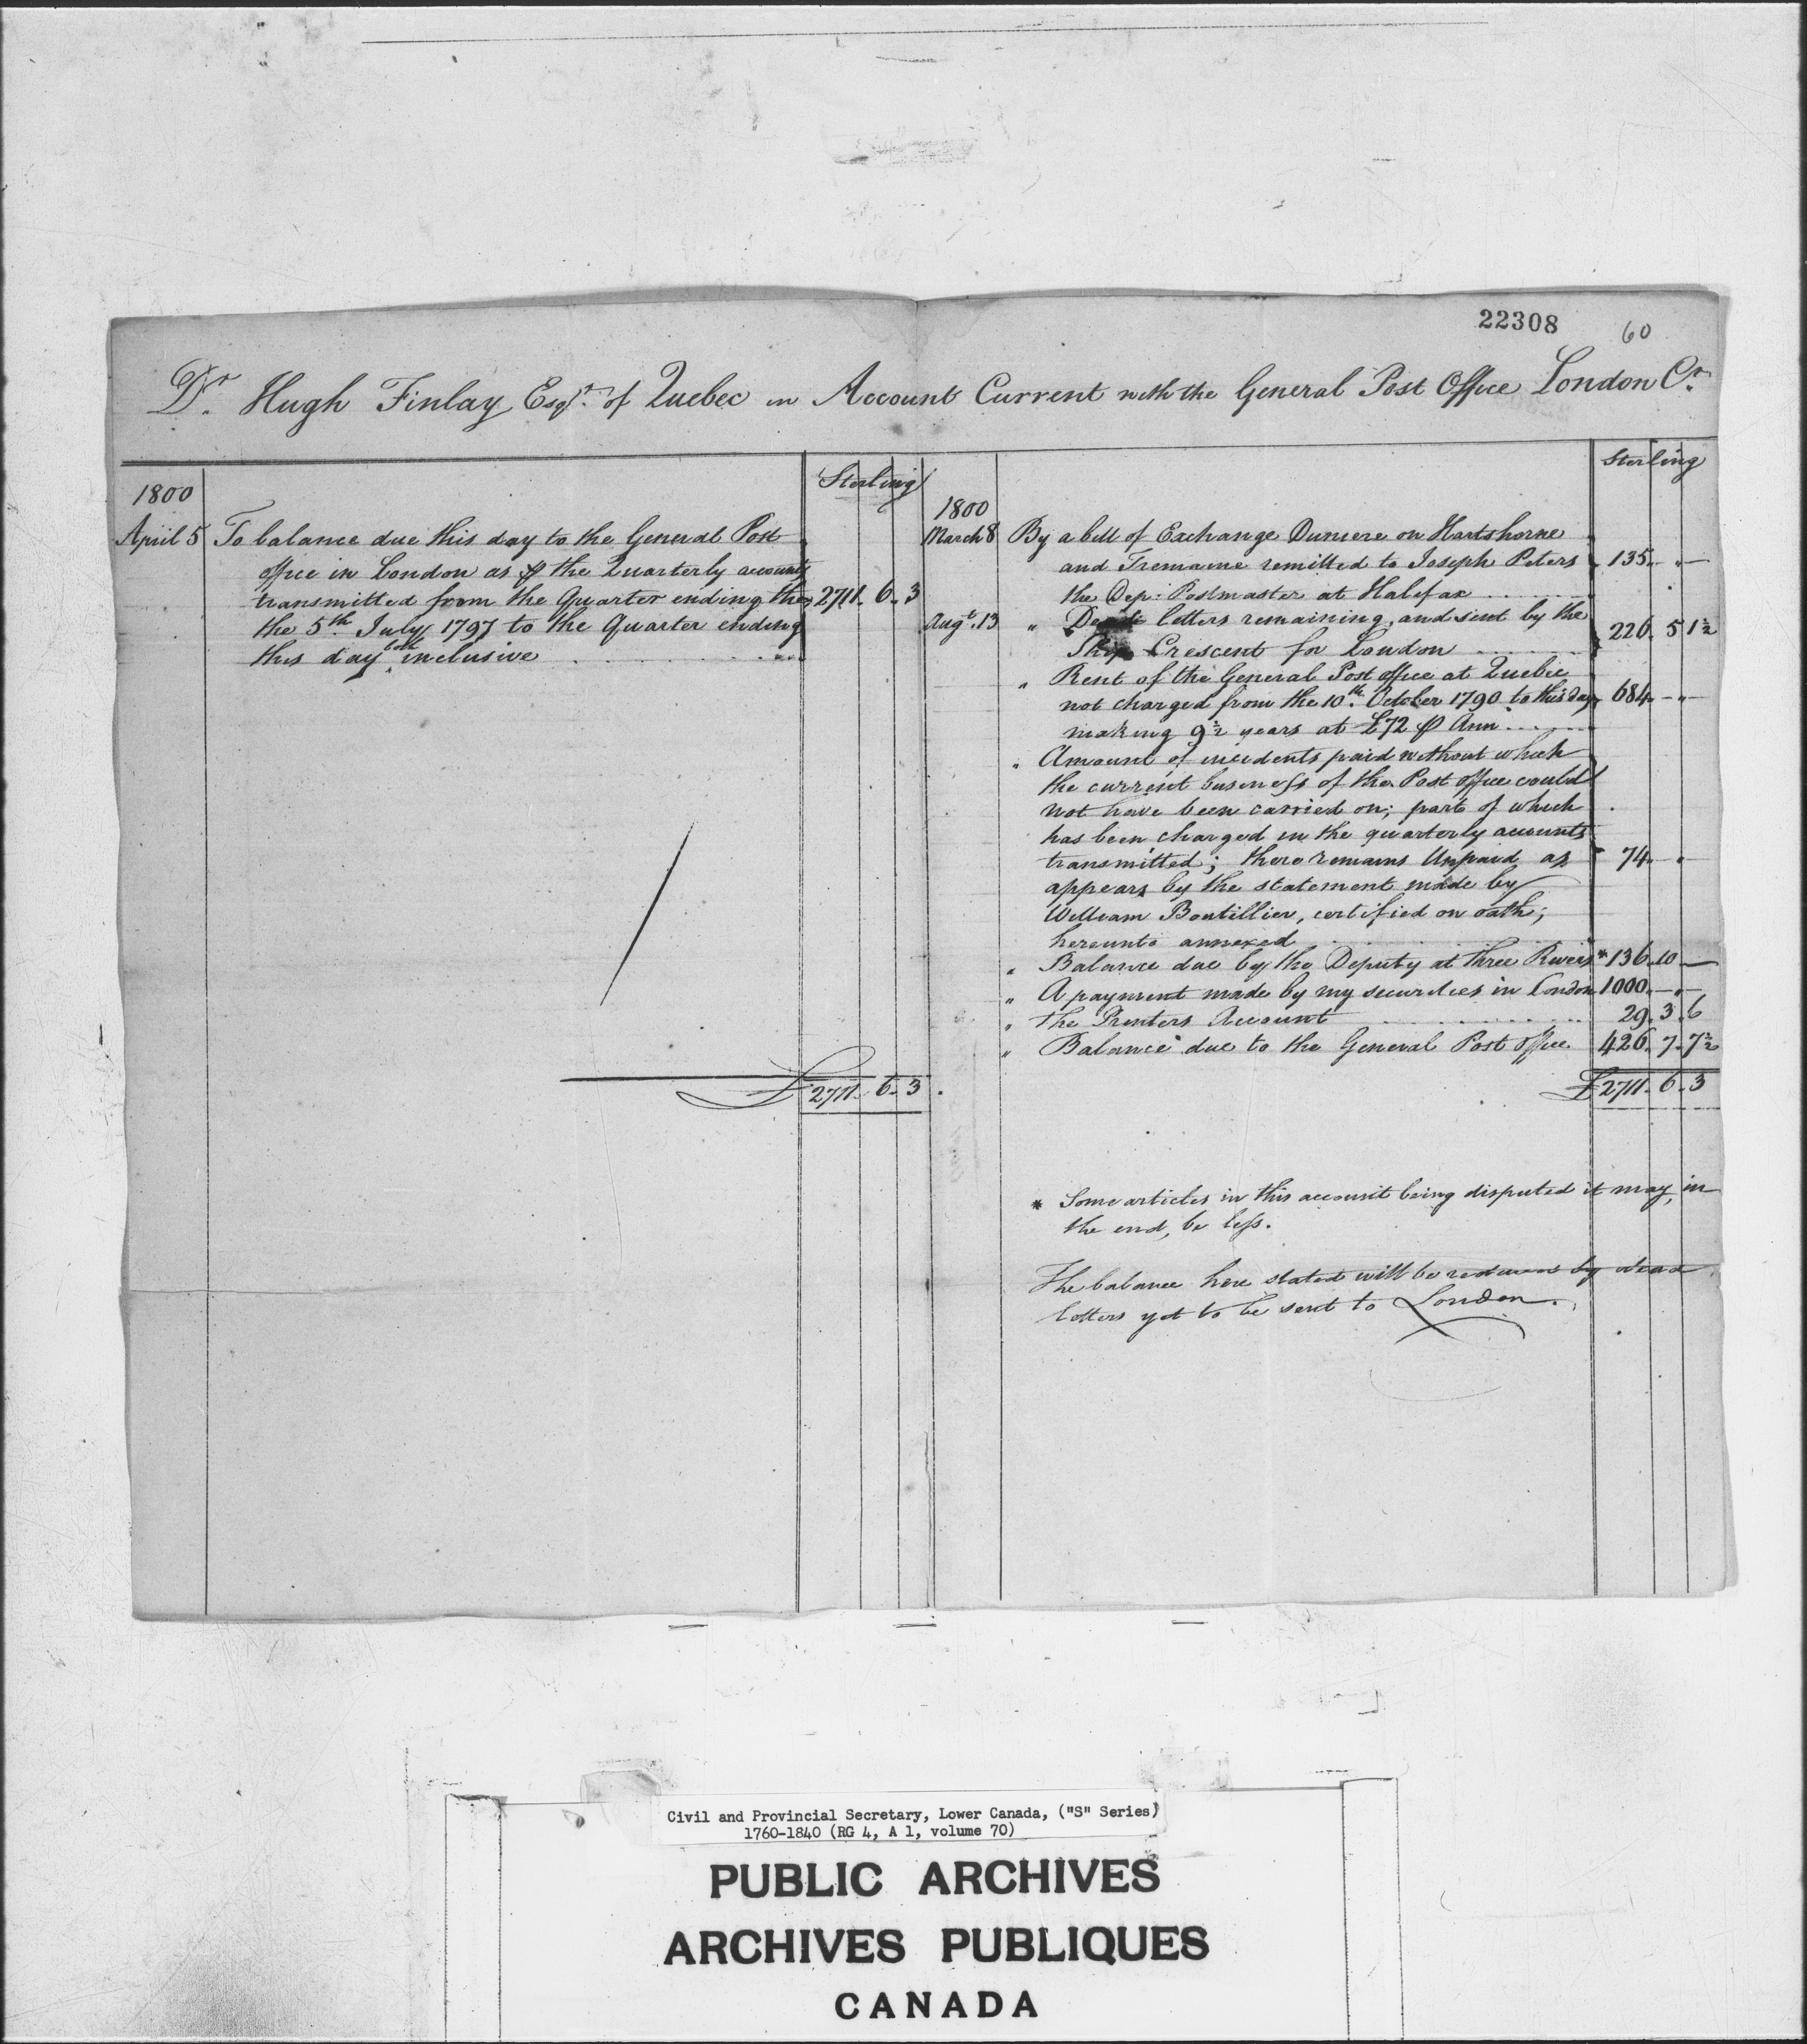 22308 60
Dr. Hugh Finlay Esqr. of Quebec in Account Current with the General Post Office London Cr.
Sterling
1800
April 5 To balance due this day to the General Post
office in London as ⅌ the Quarterly accounts
transmitted from the Quarter ending the 2711. 6. 3
the 5th. July 1797 to the Quarter ending
this day both inclusive
£ 2711. 6. 3
Sterling
1800
March 8 By a bill of Exchange Duniere on Hartshorne
and Tremaine remitted to Joseph Peters 135. " —
the Dep: Postmaster at Halifax
Augt. 13 " Dead letters remaining, and sent by the
Ship Crescent for London 226. 5 1½
" Rent of the General Post office at Quebec
not charged from the 10th. October 1790 to this day 684 - " -
making 9½ years at £72 ⅌ Ann
" Amount of incidents paid without which
the current business of the Post office could
not have been carried on; part of which
has been charged in the quarterly accounts
transmitted; there remains Unpaid as 74. - " -
appears by the statement made by
William Boutillier, certified on oath;
hereunto annexed
" Balance due by the Deputy at Three Rivers * 136. 10 —
" A payment made by my securities in London 1000. - " -
" The Printers Account 29. 3. 6
" Balance due to the General Post Office 426. 7. 7½
£ 2711. 6. 3
* Some articles in this account being disputed it may, in
the end, be less.
The balance here stated will be reduced by dead
letters yet to be sent to London.
Civil and Provincial Secretary, Lower Canada, ("S" Series)
1760-1840 (RG 4, A 1, volume 70)
PUBLIC ARCHIVES
ARCHIVES PUBLIQUES
CANADA